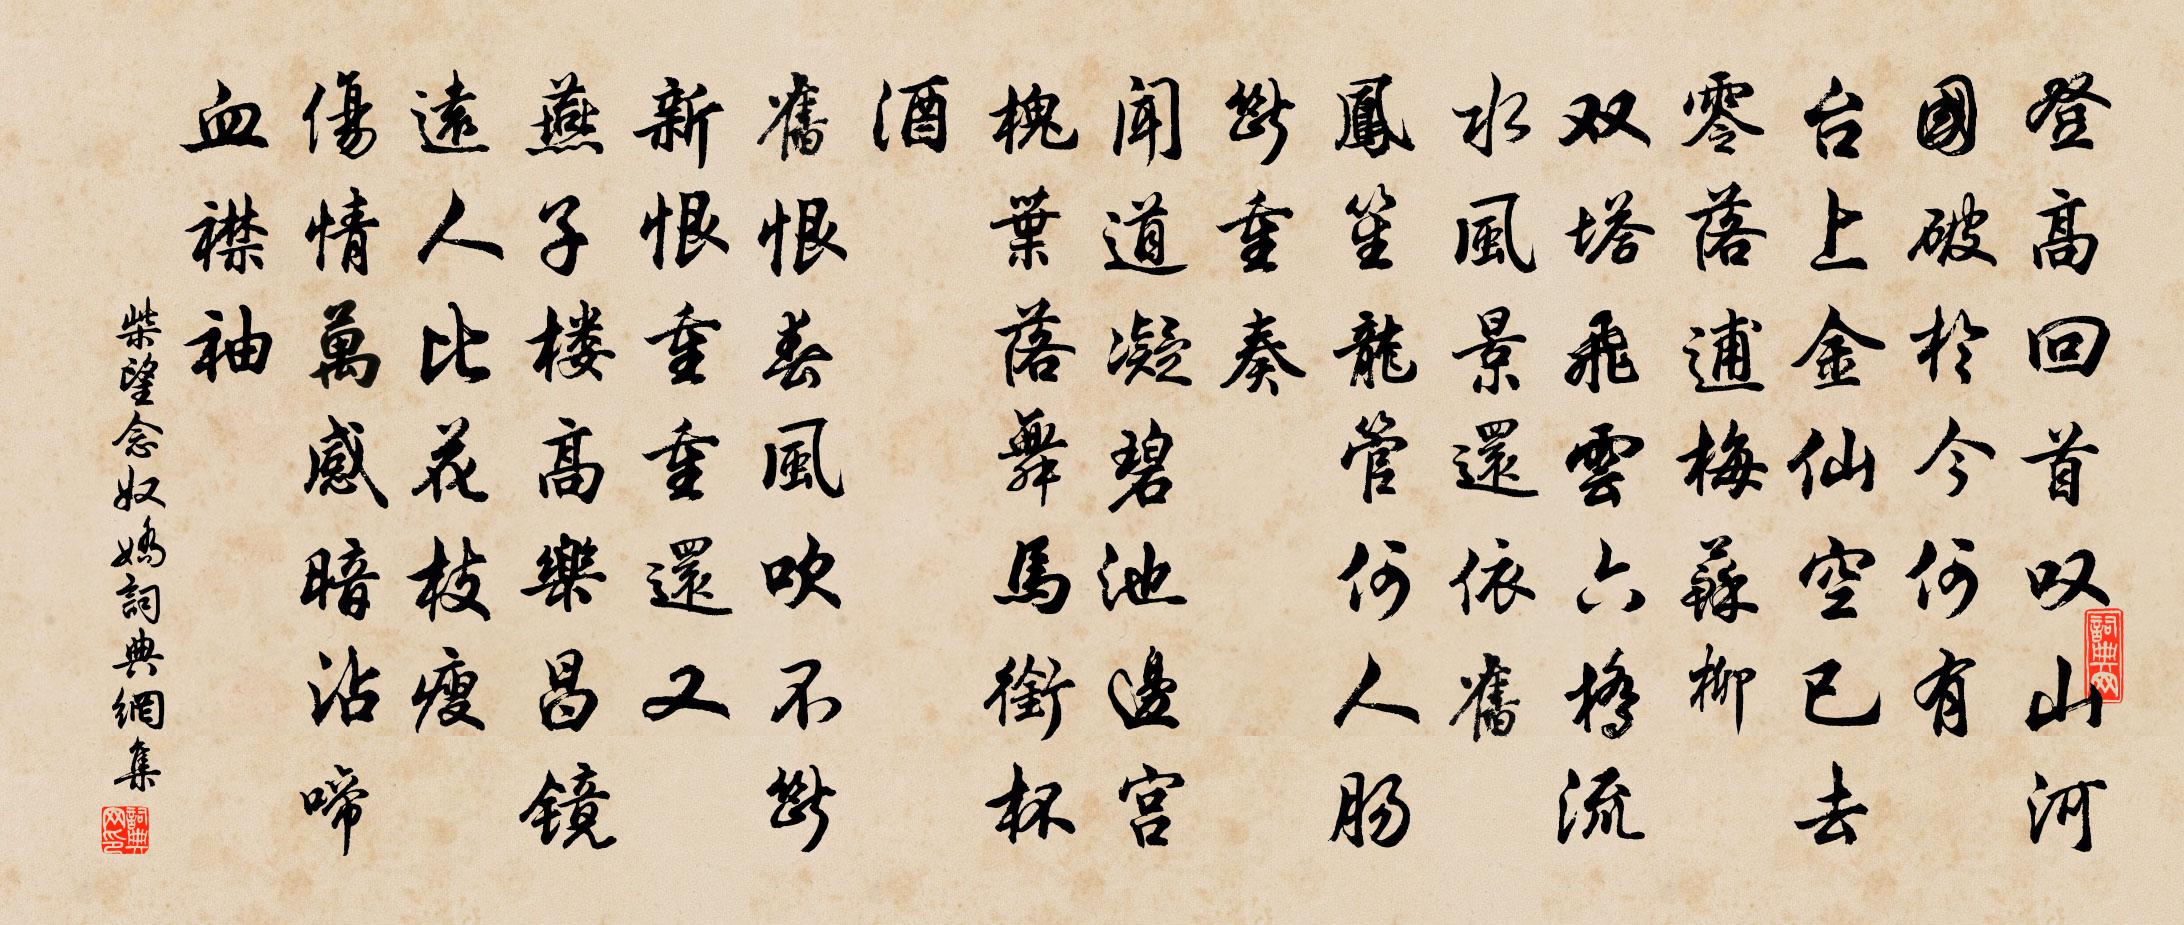 登高回首叹山河
國破於今何有
台上金仙空已去
零落逋梅蘇柳
双塔飛雲六橋流
水風景還依舊
鳳笙龍管何人腸
斷重奏
聞道凝碧池邊宮
槐葉落舞馬銜杯
酒
舊恨春風吹不斷
新恨重重還又
燕子楼高樂昌镜
遠人比花枝瘦
傷情萬感暗沾啼
血襟袖
柴望念奴嬌詞典網集
詞典网
詞典网印